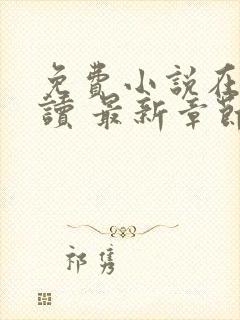 免費小說在
讀 最新章節
祁隽